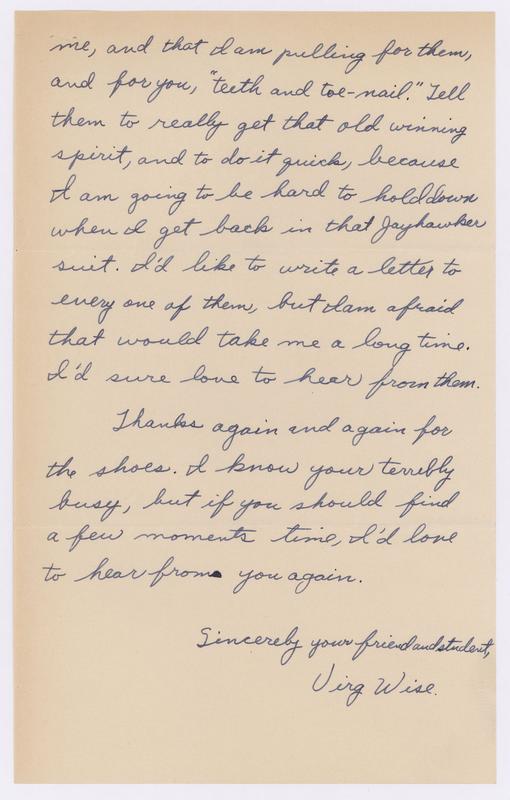 me, and that I am pulling for them,
and for you, "teeth and toe-nail." Tell
them to really get that old winning
spirit, and to do it quick, because
I am going to be hard to hold down
when I get back in that Jayhawker
suit. I'd like to write a letter to
every one of them, but I am afraid
that would take me a long time.
I'd sure love to hear from them.
Thanks again and again for
the shoes. I know your terribly
busy, but if you should find
a few moments time, I'd love
to hear from you again.
Sincerely your friend and student,
Virg Wise.